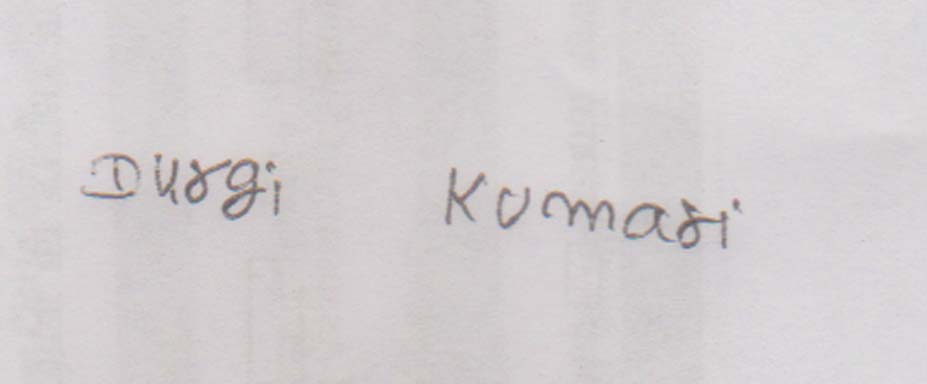 Durgi Kumari